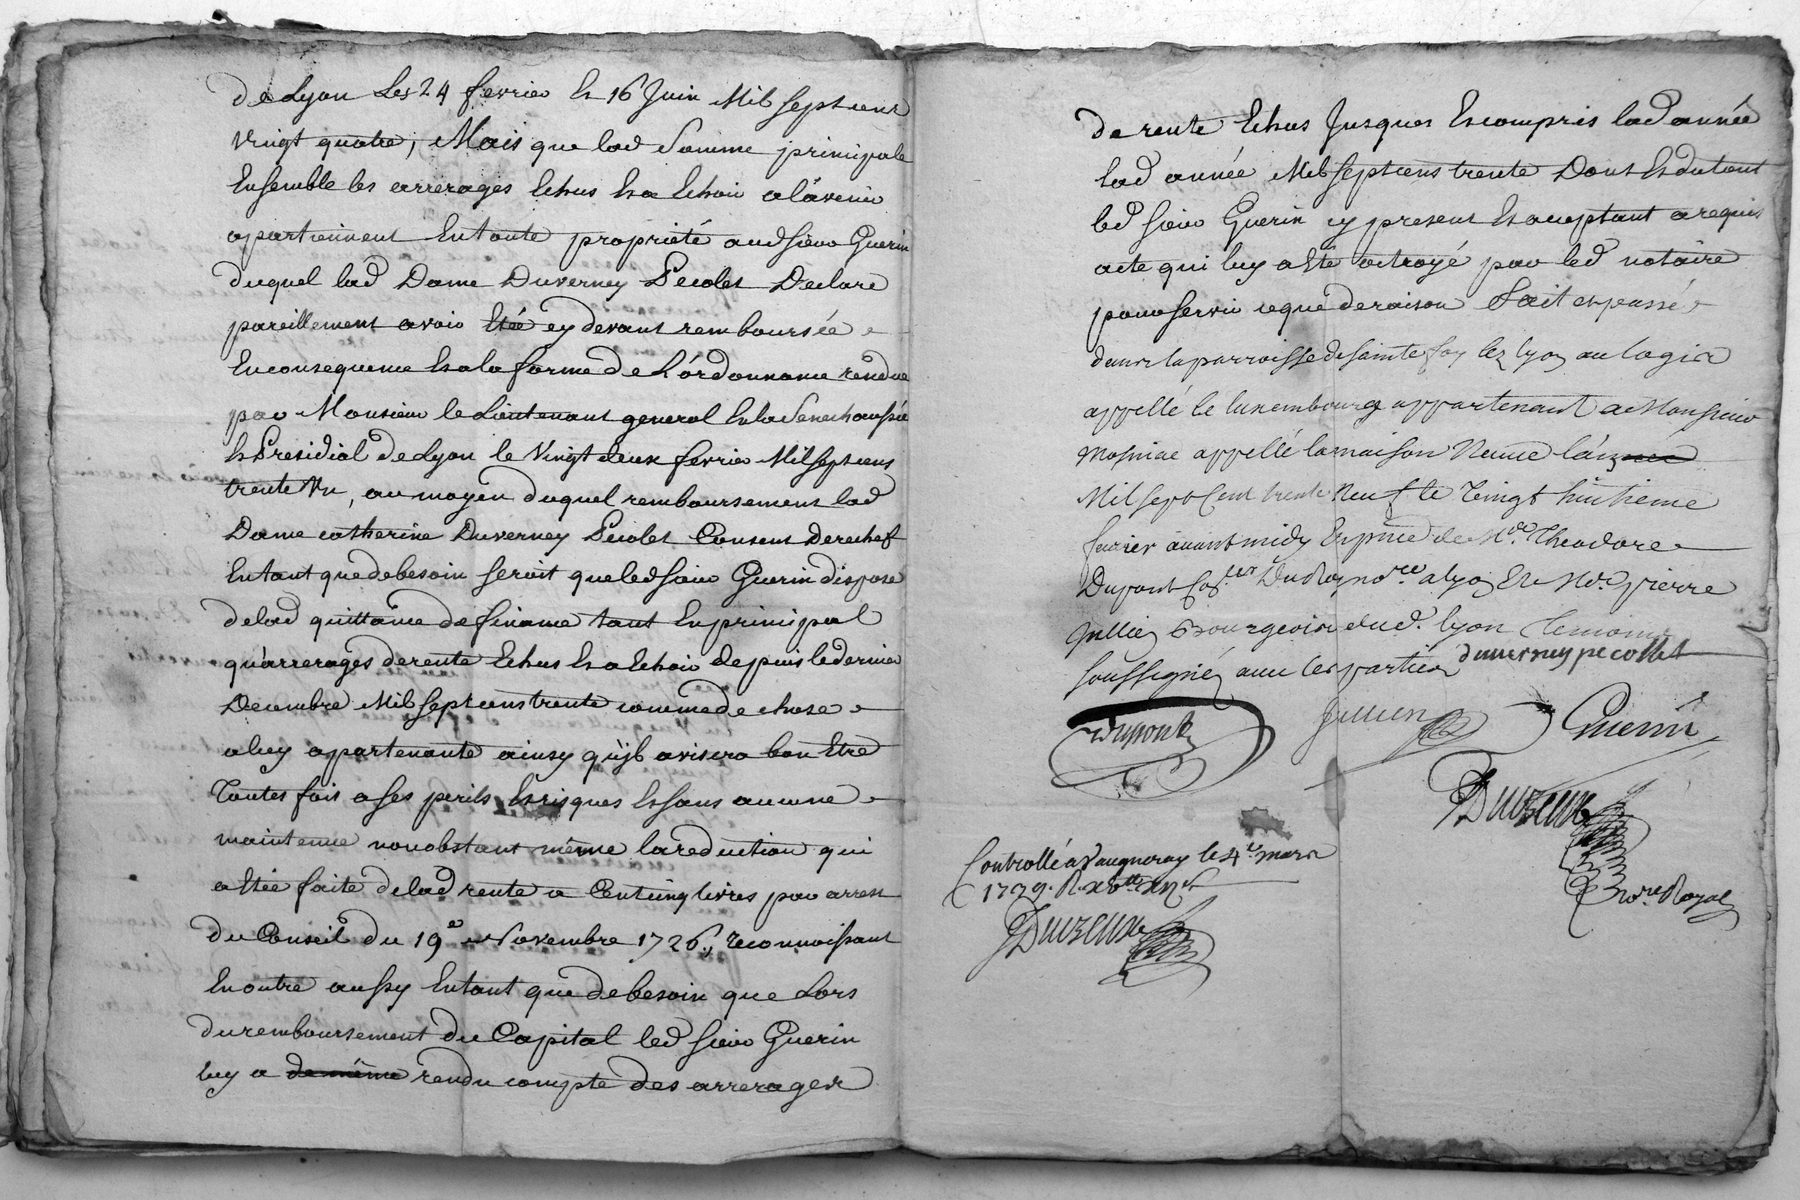 de Lyon Les 24 fevrier Et 16 Juin Mil sept cent
Vingt quatre, Mais que lad Somme principale
Ensemble les arrerages Echus Et a Echoir a l'avenir
apartiennent En toute propriété aud sieur Guerin
duquel lad Dame Duverney Pecolet Declare
pareillement avoir Etée cy devant remboursée
En consequence Et a la forme de L'ordonnance rendue
par Monsieur le Lieutenant general En la Senechaussée
Et Presidial de Lyon le Vingt deux fevrier Mil sept cens
trente Un, au moyen duquel remboursement lad
Dame catherine Duverney Pecolet Consent derechef
En tant que de besoin seroit que led sieur Guerin dispose
de lad quittance de finance tant En principal
qu'arrerages de rente Echus Et a Echoir depuis le dernier
Decembre Mil sept cens trente comme de chose
a luy apartenante ainsy qu'jl avisera bon Etre
Toutes fois a ses perils Et risques Et sans aucune
maintenue nonobstant même la reduction qui
a Etée faite de lad rente a Cent cinq livres par arrest
du Conseil du 19e Novembre 1726, reconnoissant
En outre aussy En tant que de besoin que Lors
du remboursement du Capital led sieur Guerin
luy a de même rendu compte des arrerages
de rente Echus Jusques Et compris lad année
lad année Mil sept cens trente Dont Et du tout
led sieur Guerin cy present Et acceptant a requis
acte qui luy a Eté octroyé par led notaire
pour servir ce que de raison fait et passé
dans la parroisse de sainte foy lez lyon au logis
appellé le luxembourg appartenant a Monsieur
appellé la maison Neuve
Mil sept Cent trente Neuf le Vingt huitieme
fevrier avant midy En pnce de Mr. Theodore
Dupont Du Roy a lyon Et Mr. pierre
Jullien Bourgeois dud. lyon temoins
soussignés avec les parties duverney pecollet
Dupont
Jullien
Guerin
Duvzeux
nore. Royal
Controllé a Vaugneray le 4e. mars
1739. R.